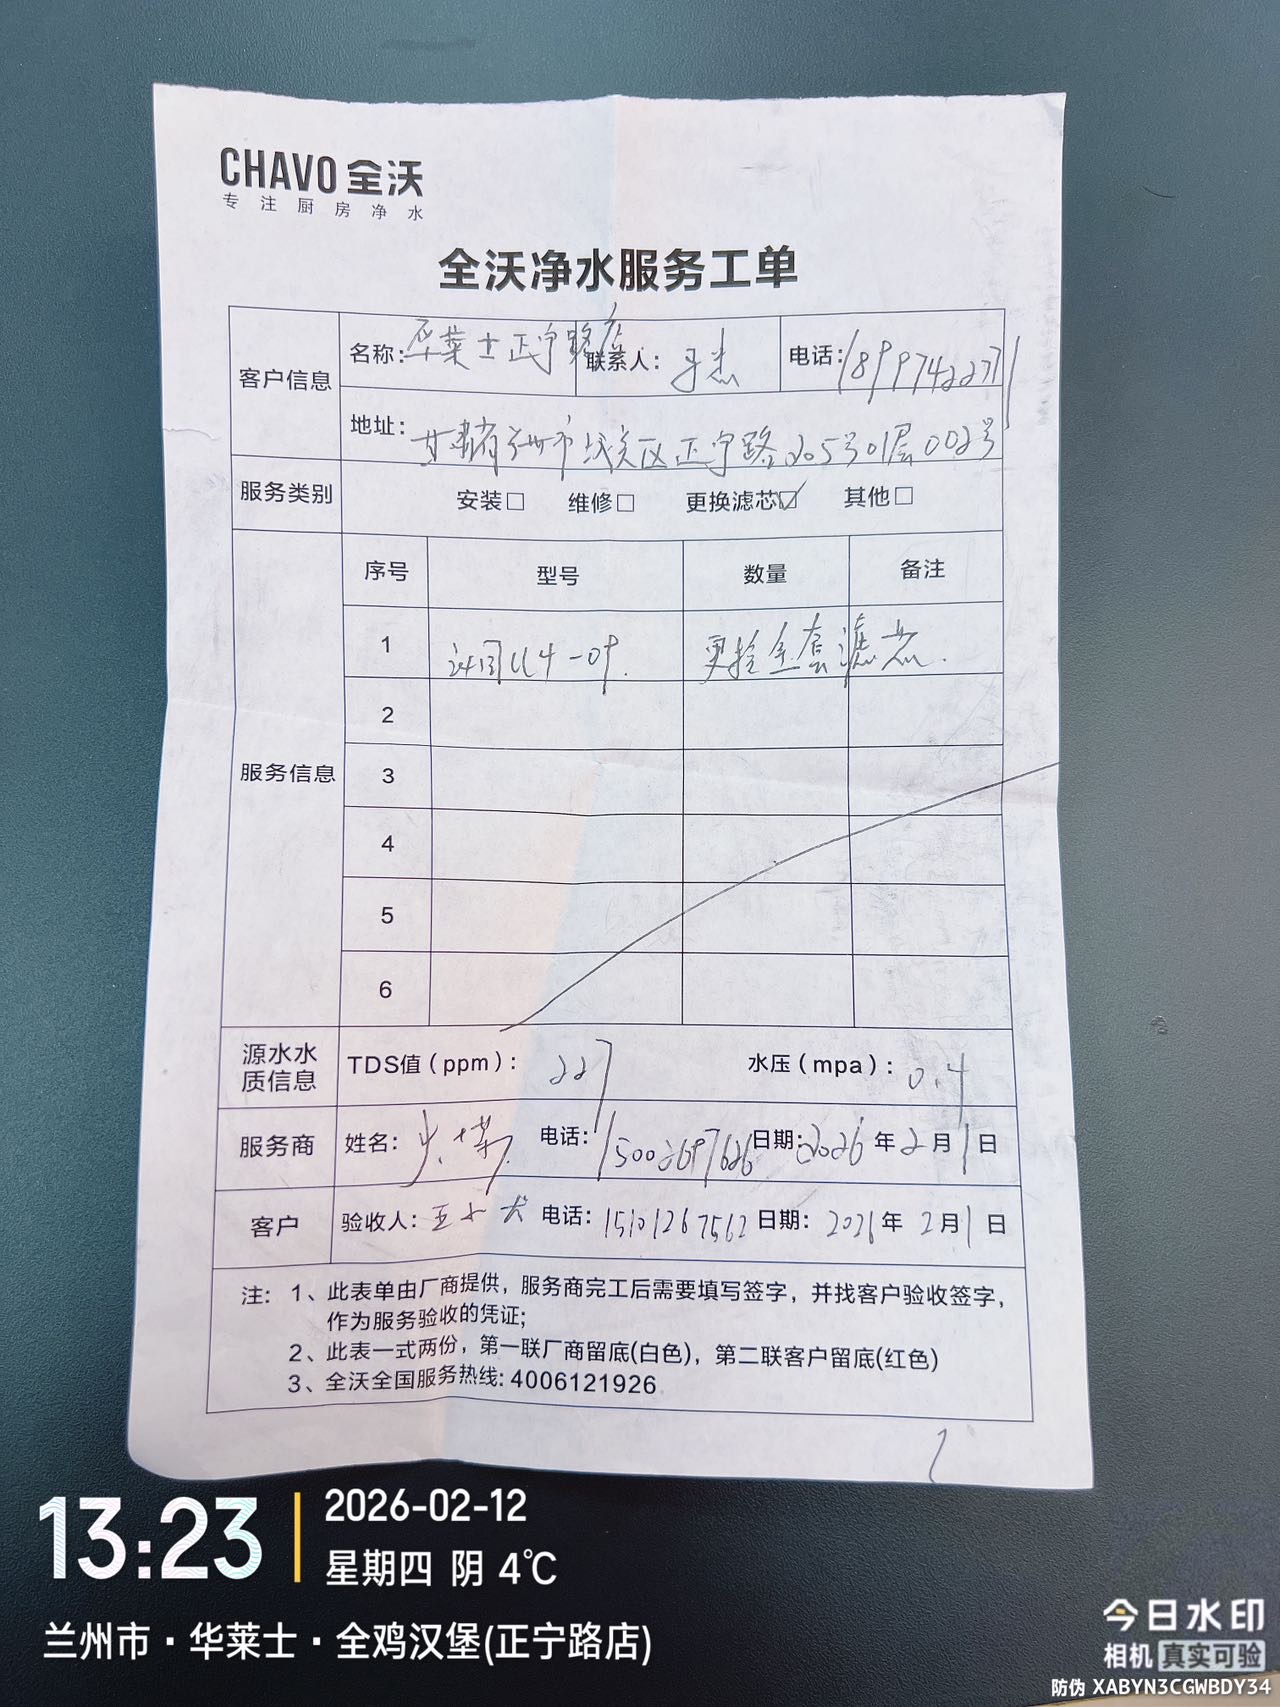 CHAVO 全沃
专注厨房净水
全沃净水服务工单
客户信息 名称: 华莱士正宁路店 联系人: 电话: 18997422771
地址: 甘肃省兰州市城关区正宁路205号01层002号
服务类别 安装□ 维修□ 更换滤芯☑ 其他□
服务信息 序号 型号 数量 备注
1 更换全套滤芯.
2
3
4
5
6
源水水质信息 TDS值(ppm): 227 水压(mpa): 0.4
服务商 姓名: 电话: 日期: 2026年2月1日
客户 验收人: 电话: 15101267562 日期: 2026年2月1日
注: 1、此表单由厂商提供，服务商完工后需要填写签字，并找客户验收签字，
作为服务验收的凭证;
2、此表一式两份，第一联厂商留底(白色)，第二联客户留底(红色)
3、全沃全国服务热线: 4006121926
13:23
2026-02-12
星期四 阴 4℃
兰州市·华莱士·全鸡汉堡(正宁路店)
今日水印
相机 真实可验
防伪 XABYN3CGWBDY34